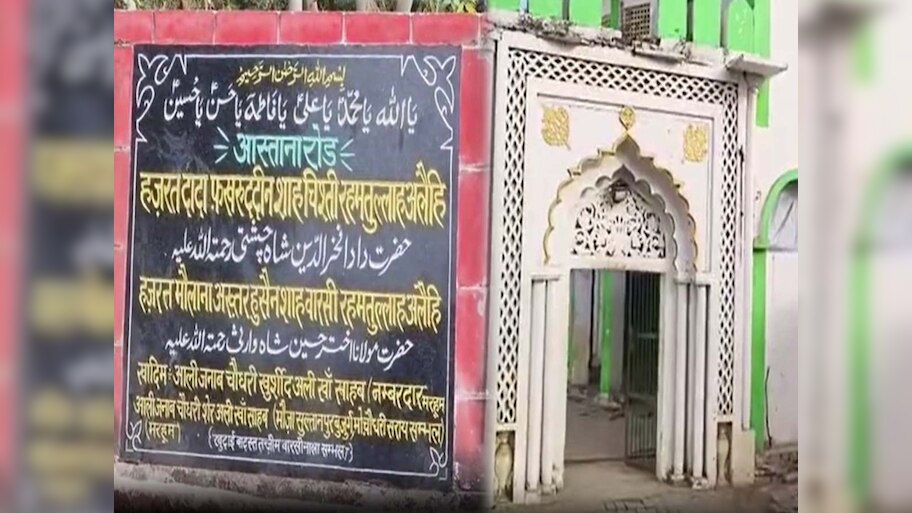 بسم اللہ الرحمٰن الرحیم
یااللہ یامحمدؐ یاعلیؑ یافاطمہؑ یاحسنؑ یاحسینؑ
आस्ताना रोड
हज़रत दादा फ़ख़रुद्दीन शाह चिश्ती रहमतुल्लाह अलैहि
حضرت دادا فخرالدین شاہ چشتی رحمتہ اللہ علیہ
हज़रत मौलाना अख़्तर हुसैन शाह वारसी रहमतुल्लाह अलैहि
حضرت مولانا اختر حسین شاہ وارثی رحمتہ اللہ علیہ
ख़ादिम : आलीजनाब चौधरी खुर्शीद अली खाँ साहब (नम्बरदार मरहूम
आलीजनाब चौधरी शेर अली खाँ साहब (मौजा सुल्तानपुर बुज़ुर्ग, मो चौधरी सराय सम्भल)
(मरहूम)
(खुदाई बदस्त तन्ज़ीम वारसी नाला सम्भल)